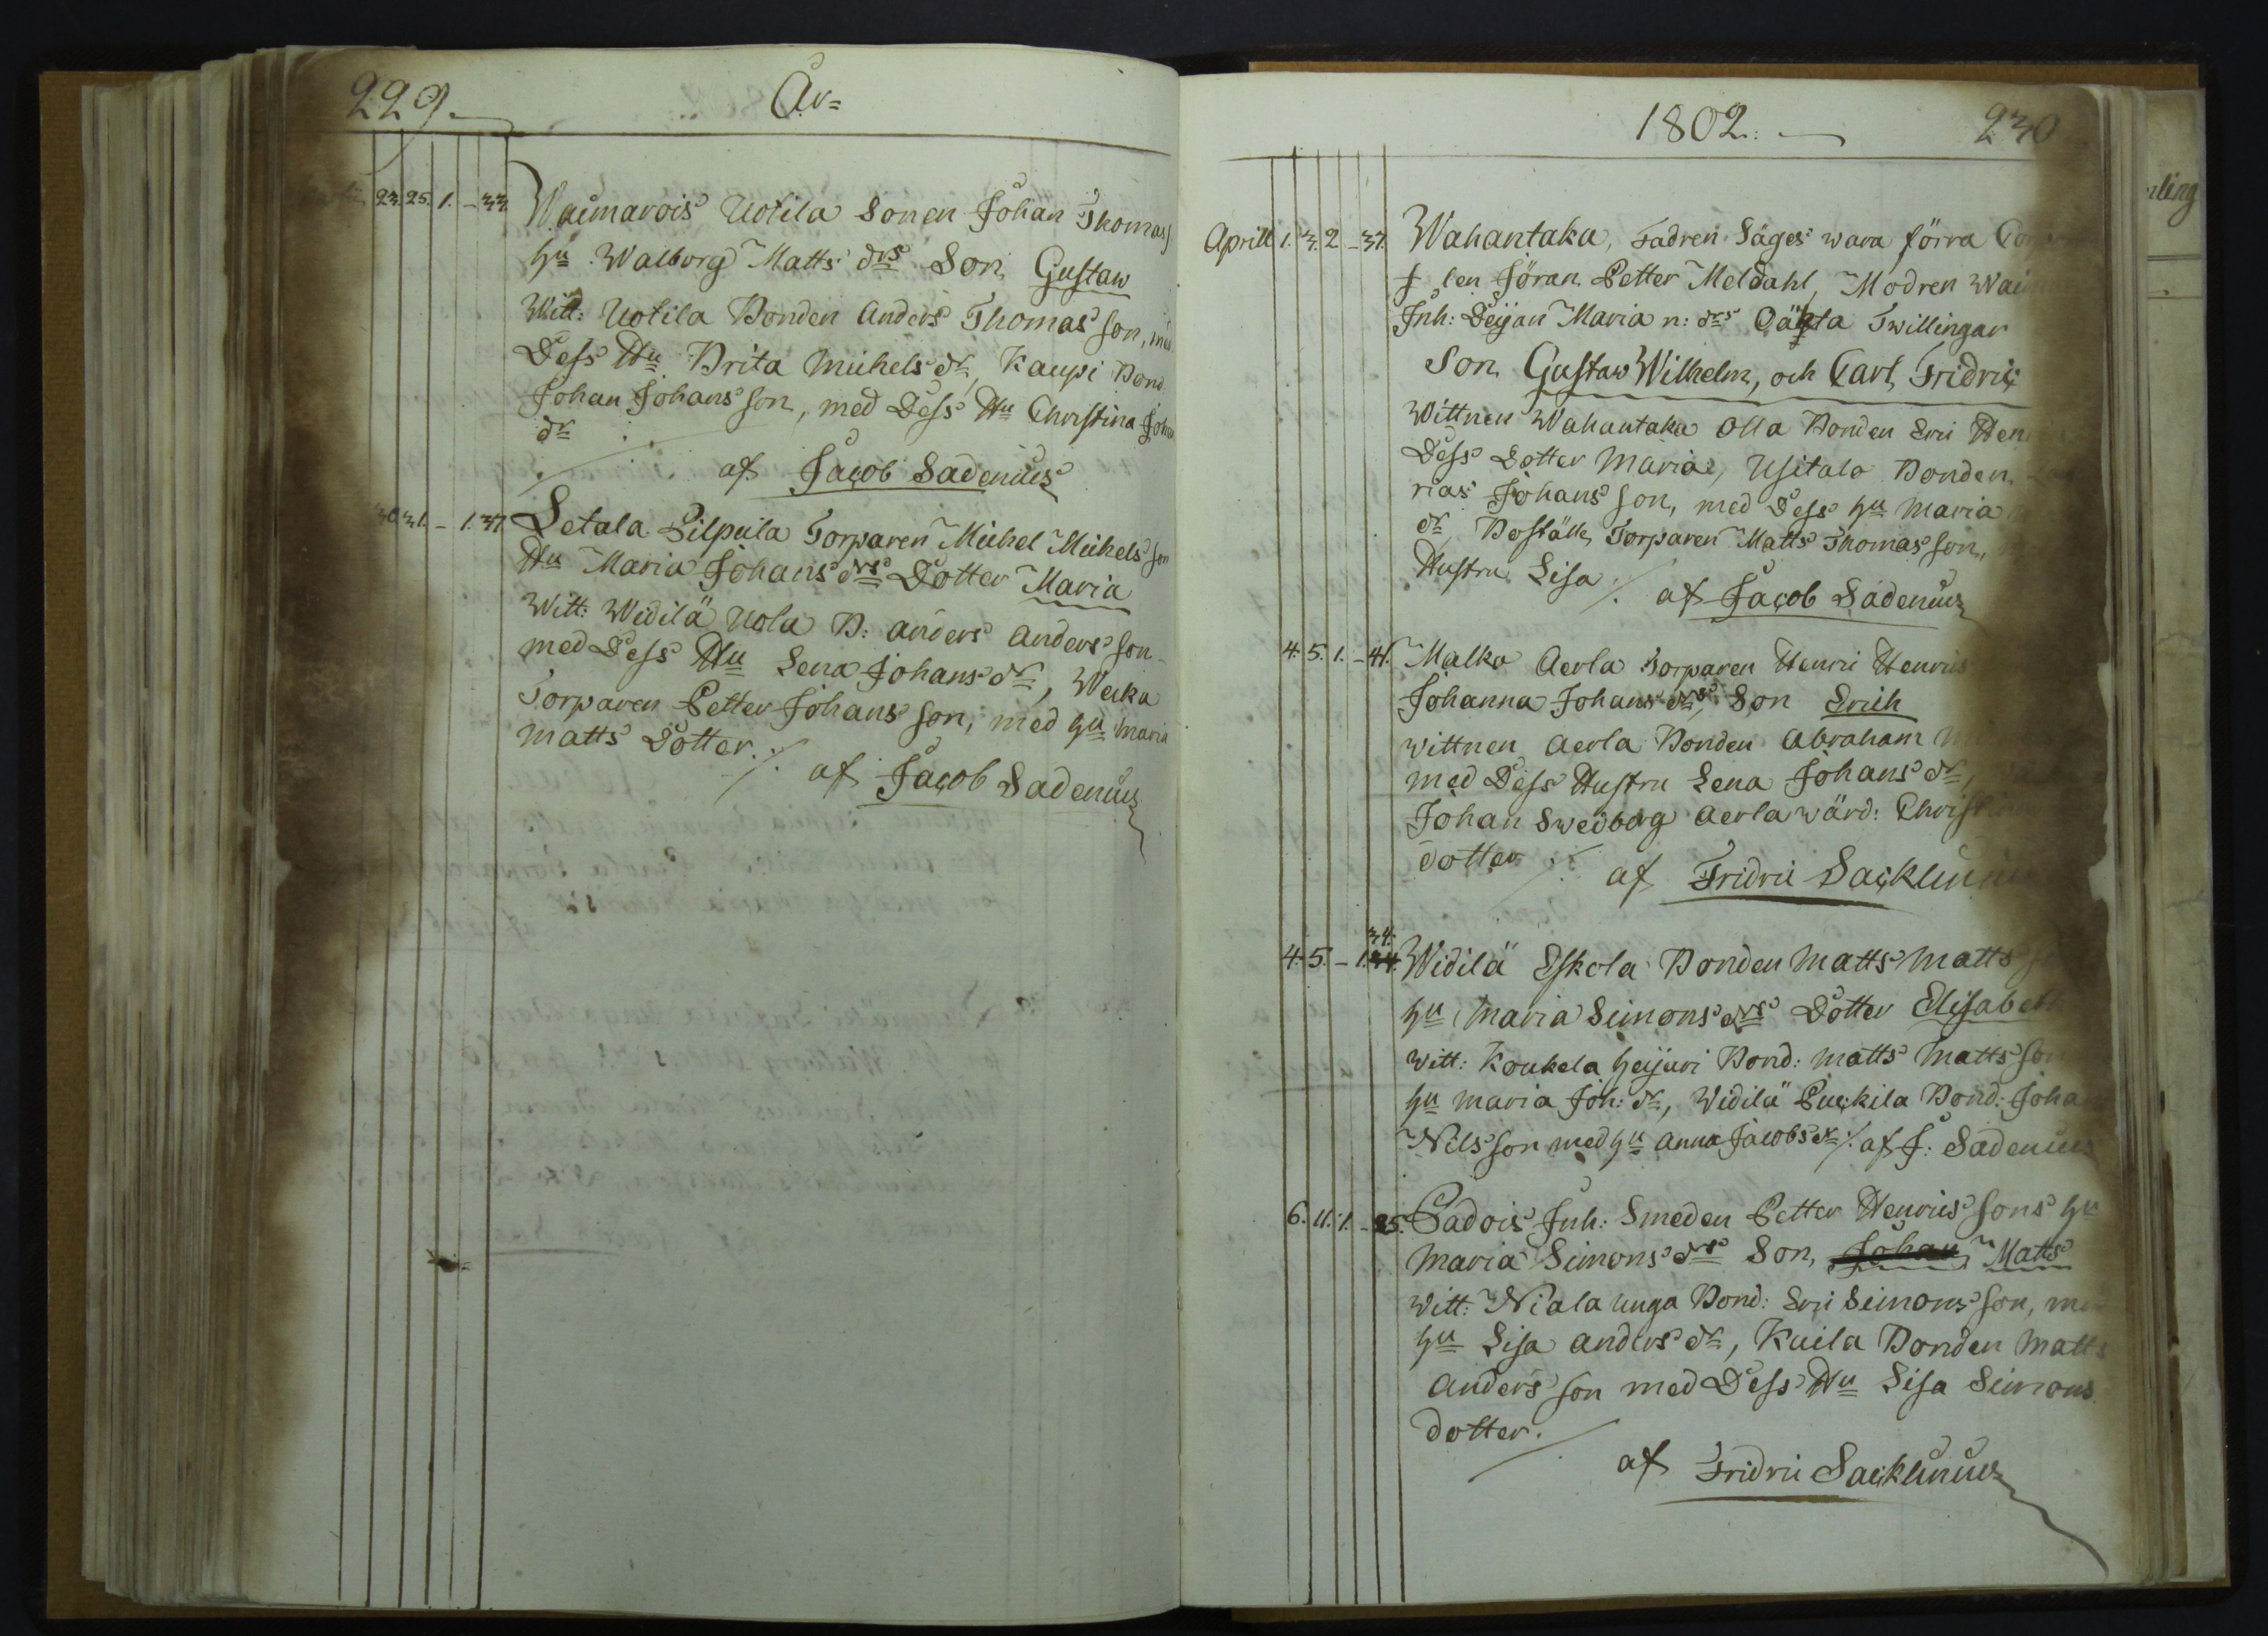 229.
År=
23. 25. 1. - 33. Waimarois Uotila Sonen Johan Thomas
hu Walborg Matts drs Son Gustaw
Witt: Uotila Bonden Anders Thomas son, med
Dess Hu Brita Michels dr, Kaupi Bond
Johan Johans son, med Dess Hu Christina Johans
dr ./.
af Jacob Sadenius
30. 31. - 1. 37. Letala Pilpula Torparen Michel Michels son
Hu Maria Johans drs Dotter Maria
Witt: Widilä Uola B: Anders Anders son
med Dess Hu Lena Johans dr, Wecka
Torparen Petter Johans son, med hu Maria
Matts Dotter. ./.
af Jacob Sadenius
1802.
230
Aprill 1. 3. 2 - 37. Wahantaka, Fadren Säges wara förra
Jöran Petter Meldahl, Modren
Inh: Deijan Maria n: drs Oäkta Twillingar
Son Gustaw Wilhelm, och Carl Fridric
Wittnen Wahantaka Olla Bonden Eric
Dess Dotter Maria, Usitalo Bonden
rias Johans son, med Dess hu Maria
dr, Boställs Torparen Matts Thomas son,
Hustru Lisa ./. af Jacob Sadenius
4. 5. 1. - 41. Malko Aerla Torparen Henric Henrics
Johanna Johans drs, Son Erich
wittnen Aerla Bonden Abraham
med Dess Hustru Lena Johans dr,
Johan Swedborg Aerla wärd:
dotter ./.
af Fridric Sacklinius
34.
4. 5. - 1. Widilä Eskola Bonden Matts Matts
hu Maria Simons drs Dotter Elisabeth
Witt: Koukela Heijari Bond: Matts Matts son
hu Maria Joh: dr, Widilä Puckila Bond: Joha
Nils son med hu Anna Jacobs dr ./. af J: Sadenius
6. 11. 1. - 25. Sadois Inh: Smeden Petter Henrics sons hu
Maria Simons drs Son, Johan Matts
Witt: Niala unga Bond: Eric Simons son, me
hu Lisa Anders dr, Kuila Bonden Matts
Anders son med Dess Hu Lisa Simons
dotter. ./.
af Fridric Sacklinius